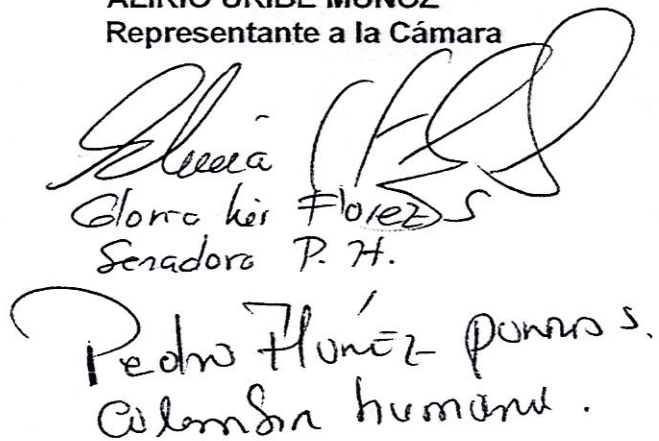 ALIRIO URIBE MUÑOZ
Representante a la Cámara
Gloria Flórez S
Senadora P. H.
Pedro Flórez Porras S.
Colombia humana.